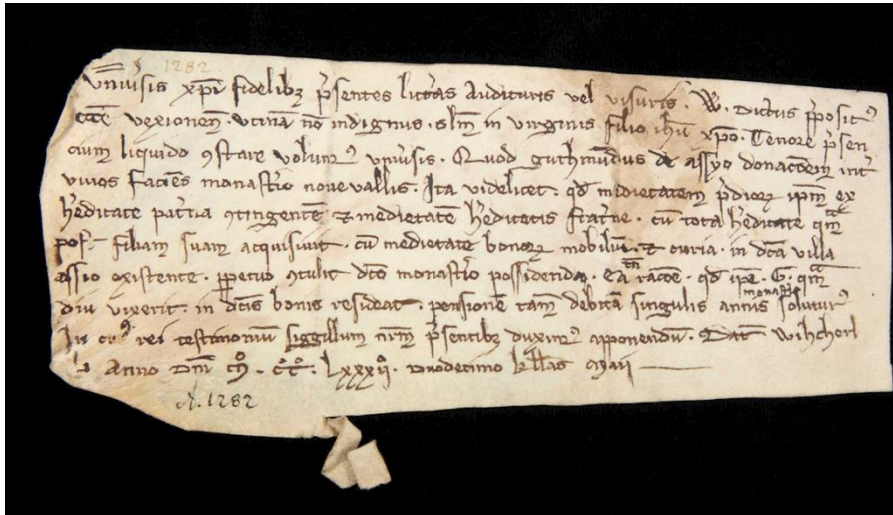 § 1282
Vniusis xp̄i fidelibꝫ p̄sentes litt̄as audituris vel visuris · W · dictus p̄posit᷒
ecc̄e vexionen̄ · vtinā nō indignus · sl̄m in virginis filio ih̄u xp̄o · Tenore p̄sen
cium liquido ꝯstare volum᷒ vniu̓sis · Quod guthmūdus de assyo donac̄oem int̓
viuos facie̅s monast̓io noue vallis · Ita videlicet · qd̄ medietatem p̄dioꝝ ip̄m ex
h̓editate pat̓na ꝯtingente̅ ⁊ medietate̅ h̓editatis frat̓ne · cū tota h̓editate qm̄
post filiam suam acquisiuit · cū medietate bonoꝝ mobiliū · ⁊ curia · in dc̄a villa
assio existente · ꝑpetuo ꝯtulit dc̄o monast̓io possidenda · Ea tn̄ rac̄oe · qd̄ ip̄e · G · qm̄
diu vixerit · in dc̄is bonis resideat · pensione̅ tam̄ debitā singulis annis monast̓io solutur᷒
In cui᷒ rei testimoniū sigillum nr̄m p̄sentibꝫ duxim᷒ apponendū · Datū Wihcherl
Anno Dn̄i · M̊ · C̊C̊ · lxxxijº · vndecimo kll̄as maii
A. 1282